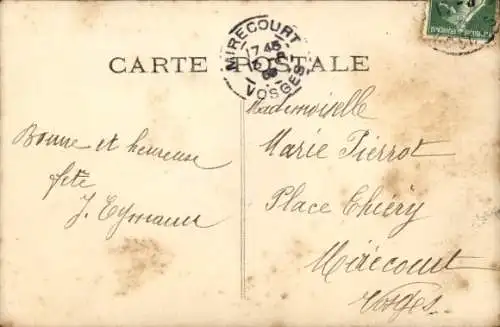 CARTE POSTALE
MIRECOURT
7 45
VOSGES
Bonne et heureuse
fête
Mademoiselle
Marie Pierrot
Place Thiéry
Mirecourt
Vosges